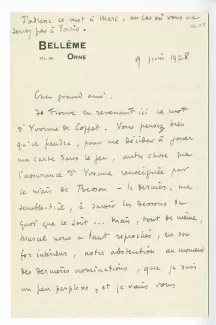 J'adresse ce mot à Marc, au cas où vous ne
seriez pas à Paris.
BELLÊME
TEL. 28 ORNE
9 juin 1928
Cher grand ami,
Je trouve en revenant ici ce mot
d'Yvonne de Coppet. Vous pensez bien
qu'il faudra, pour me décider à jouer
ma carte dans le jeu, autre chose que
l'assurance d'Yvonne renseignée par
ce niais de Besson – le dernier, me
semble-t-il, à savoir les dessous de
quoi que ce soit... Mais, tout de même,
Marcel nous a tant reprochés, en son
for intérieur, notre abstention au moment
des dernières nominations, que je suis
un peu perplexe, et je viens vous